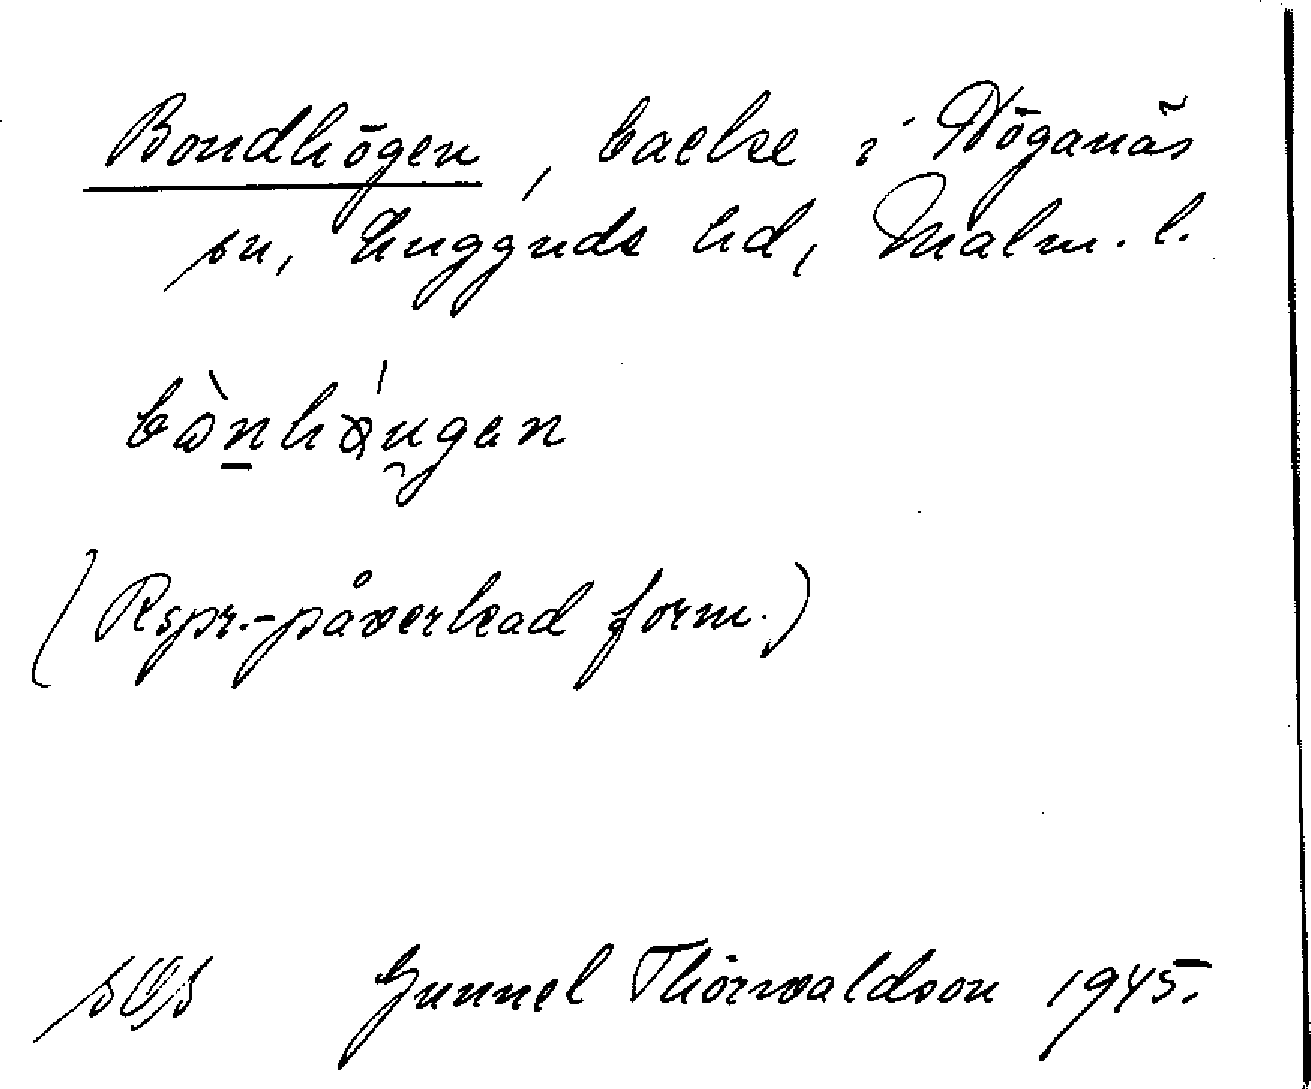 Bondhögen, backe i Höganäs
sn, Luggude hd, Malm. l.
bònhǿugen
(Rspr.-påverkad form.)
Gunnel Thörnvaldson 1945.